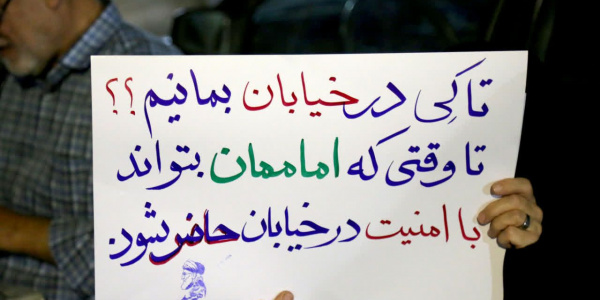 تا کِی در خیابان بمانیم؟؟
تا وقتی که اماممان بتواند
با امنیت در خیابان حاضر بشود.